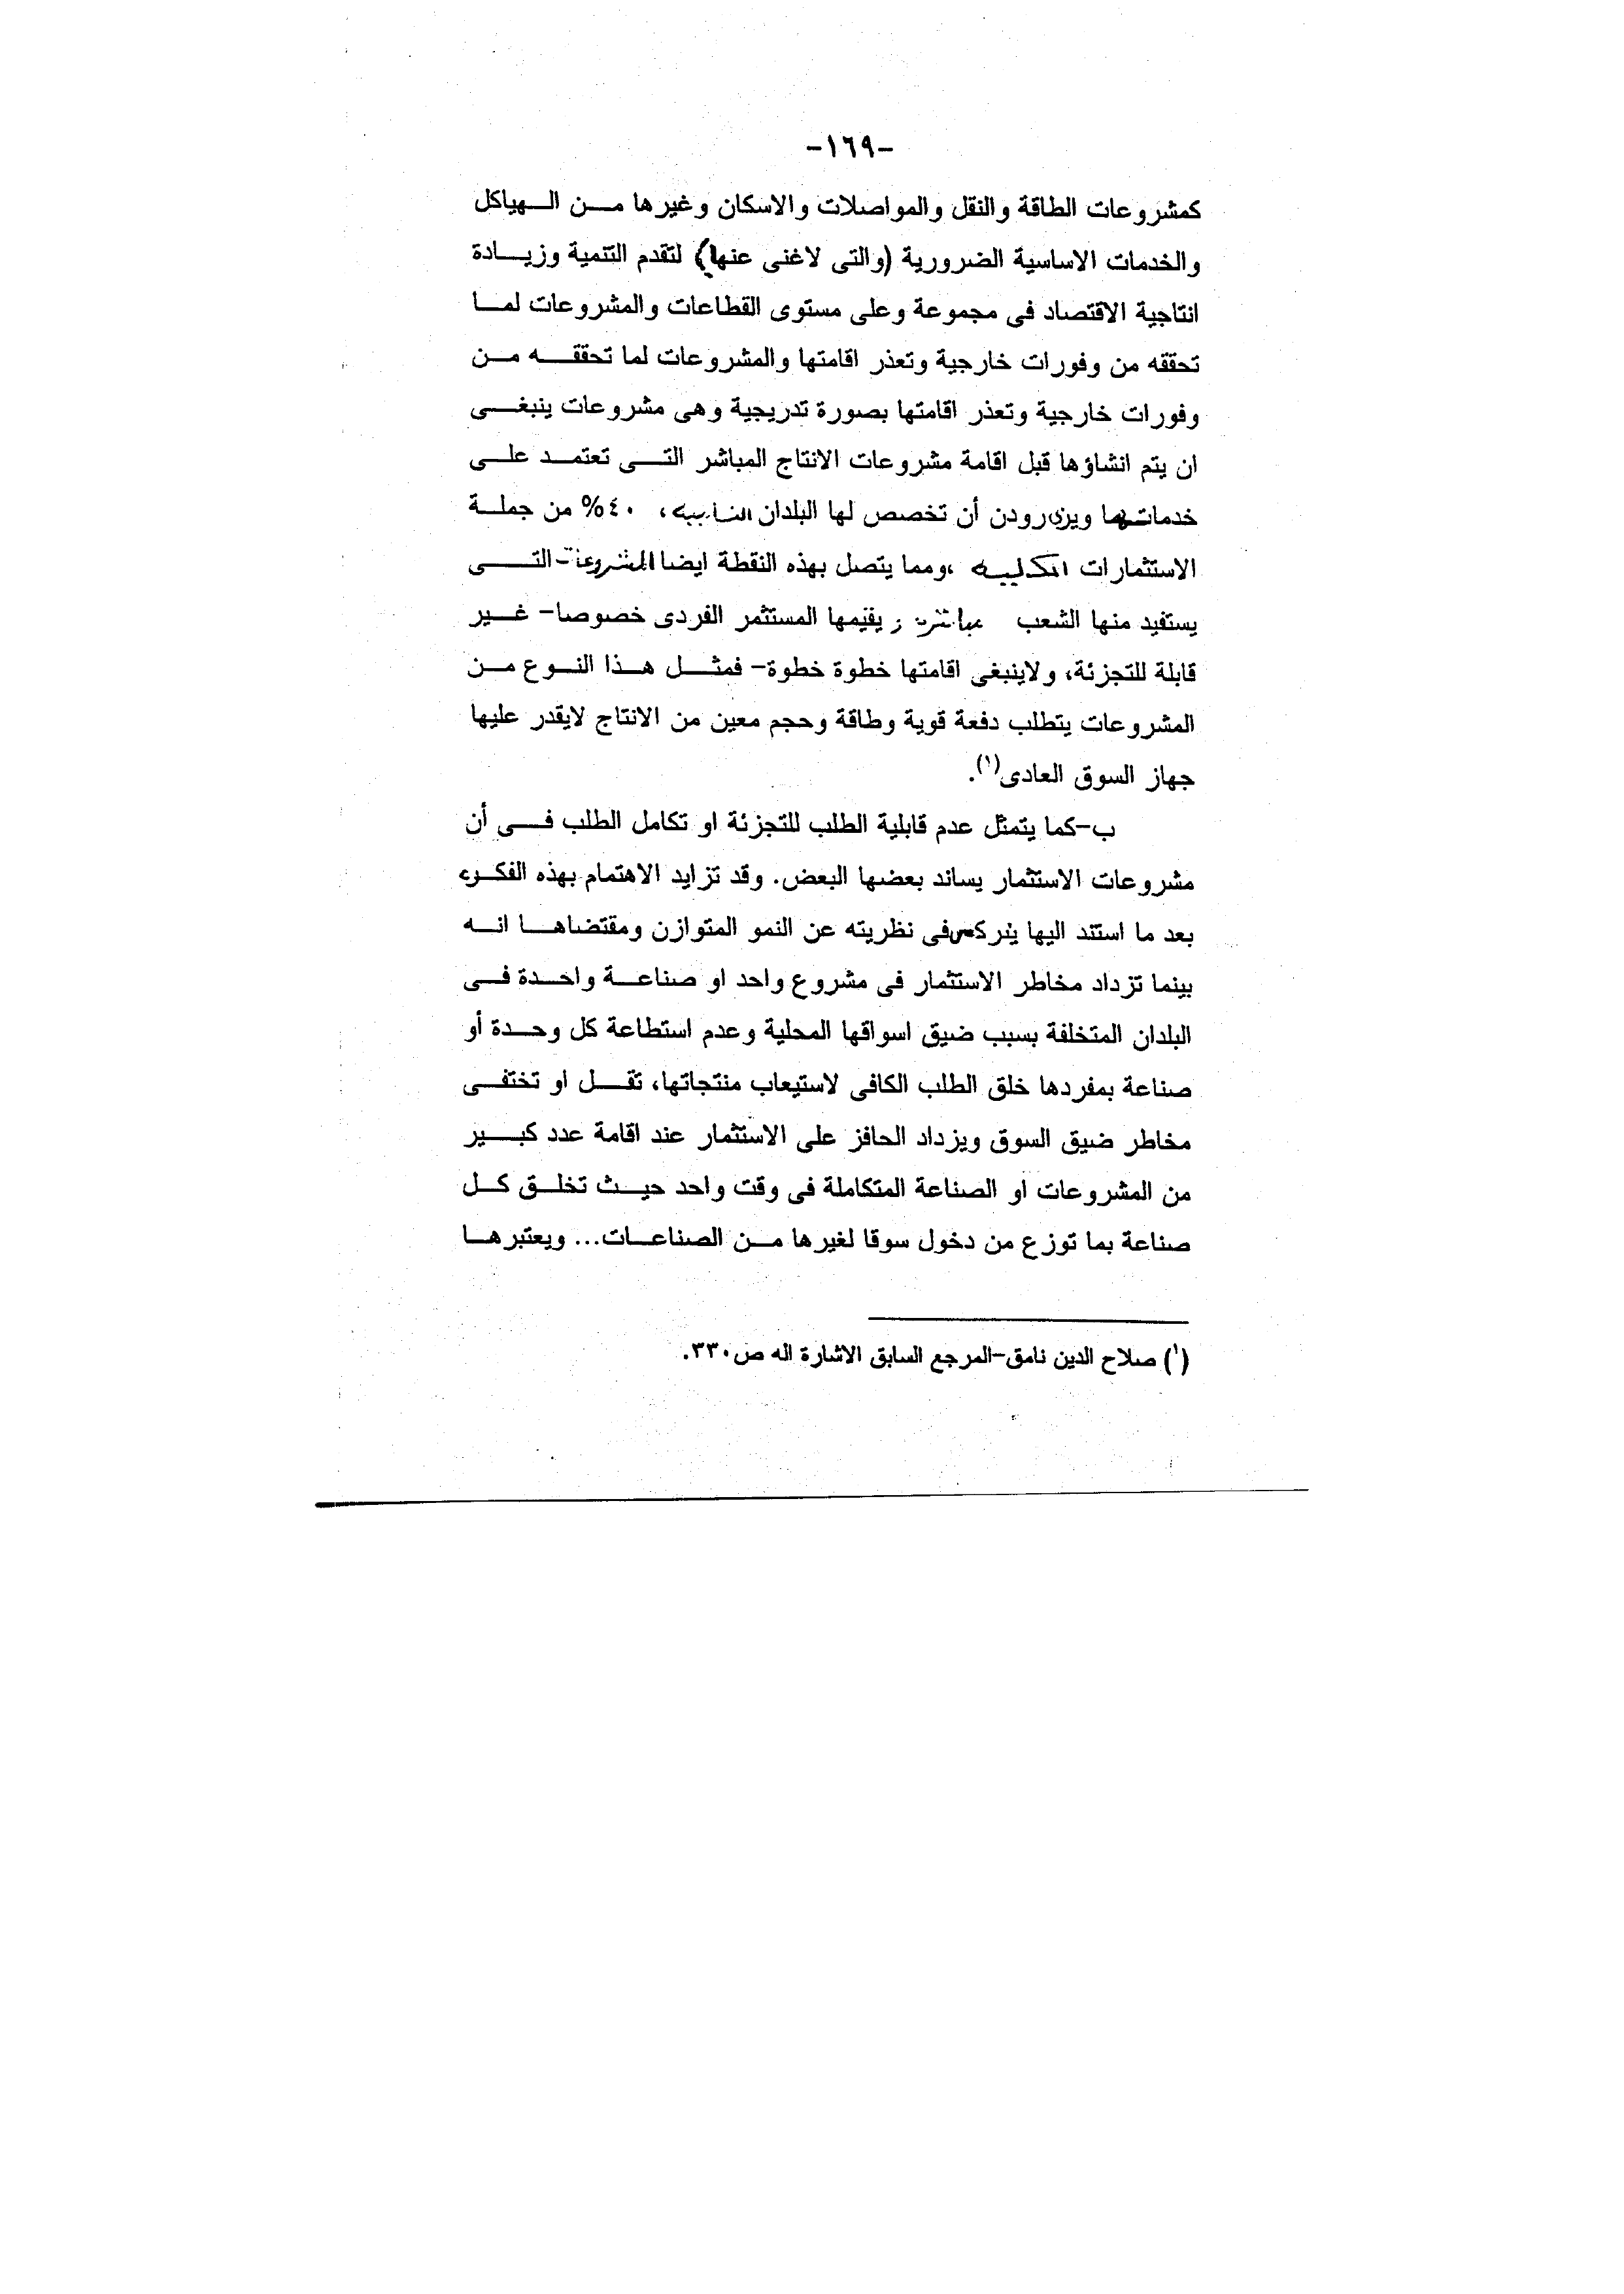 -١٦٩-
كمشروعات الطاقة والنقل والمواصلات والاسكان وغيرها من الهياكل
والخدمات الاساسية الضرورية (والتى لاغنى عنها) لتقدم التنمية وزيادة
انتاجية الاقتصاد فى مجموعة وعلى مستوى القطاعات والمشروعات لما
تحققه من وفورات خارجية وتعذر اقامتها والمشروعات لما تحققه من
وفورات خارجية وتعذر اقامتها بصورة تدريجية وهى مشروعات ينبغى
ان يتم انشاؤها قبل اقامة مشروعات الانتاج المباشر التى تعتمد على
خدماتها ويرى رودن أن تخصص لها البلدان النامية، ٤٠% من جملة
الاستثمارات الكلية ،ومما يتصل بهذه النقطة ايضا المشروعات التى
يستفيد منها الشعب مباشرة يقيمها المستثمر الفردى خصوصا- غير
قابلة للتجزئة، ولاينبغى اقامتها خطوة خطوة- فمثل هذا النوع من
المشروعات يتطلب دفعة قوية وطاقة وحجم معين من الانتاج لايقدر عليها
جهاز السوق العادى(١).
ب-كما يتمثل عدم قابلية الطلب للتجزئة او تكامل الطلب فى أن
مشروعات الاستثمار يساند بعضها البعض. وقد تزايد الاهتمام بهذه الفكرة
بعد ما استند اليها فى نظريته عن النمو المتوازن ومقتضاها انه
بينما تزداد مخاطر الاستثمار فى مشروع واحد او صناعة واحدة فى
البلدان المتخلفة بسبب ضيق اسواقها المحلية وعدم استطاعة كل وحدة أو
صناعة بمفردها خلق الطلب الكافى لاستيعاب منتجاتها، تقل او تختفى
مخاطر ضيق السوق ويزداد الحافز على الاستثمار عند اقامة عدد كبير
من المشروعات او الصناعة المتكاملة فى وقت واحد حيث تخلق كل
صناعة بما توزع من دخول سوقا لغيرها من الصناعات... ويعتبرها
(١) صلاح الدين نامق-المرجع السابق الاشارة اله ص٣٣٠.